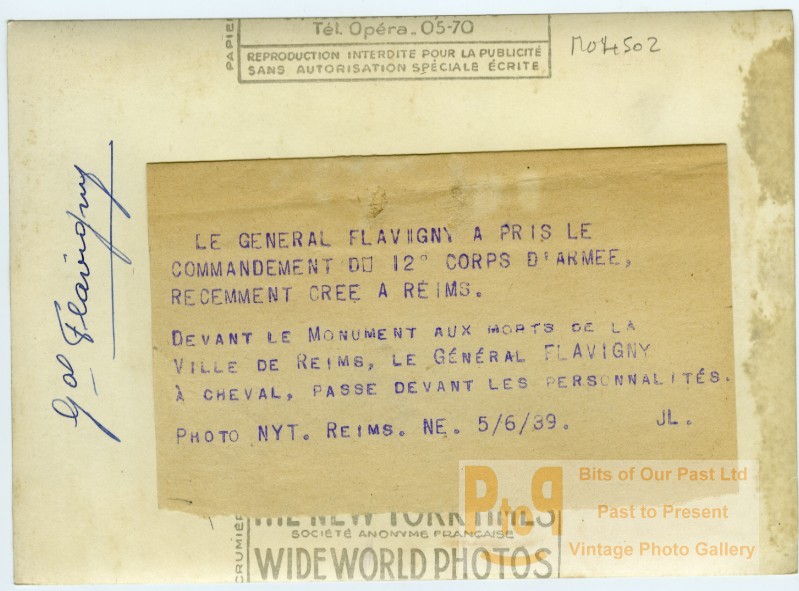 PAPIER
Tél. Opéra_ 05-70
REPRODUCTION INTERDITE POUR LA PUBLICITÉ
SANS AUTORISATION SPÉCIALE ÉCRITE
Gal Flavigny
LE GENERAL FLAVIIGNY A PRIS LE
COMMANDEMENT DU 12° CORPS D'ARMEE,
RECEMMENT CREE A REIMS.
DEVANT LE MONUMENT AUX MORTS DE LA
VILLE DE REIMS, LE GÉNÉRAL FLAVIGNY
À CHEVAL, PASSE DEVANT LES PERSONNALITÉS.
PHOTO NYT. REIMS. NE. 5/6/39. JL.
THE NEW YORK TIMES
SOCIÉTÉ ANONYME FRANÇAISE
WIDE WORLD PHOTOS
CRUMIÈR
PtoP
Bits of Our Past Ltd
Past to Present
Vintage Photo Gallery